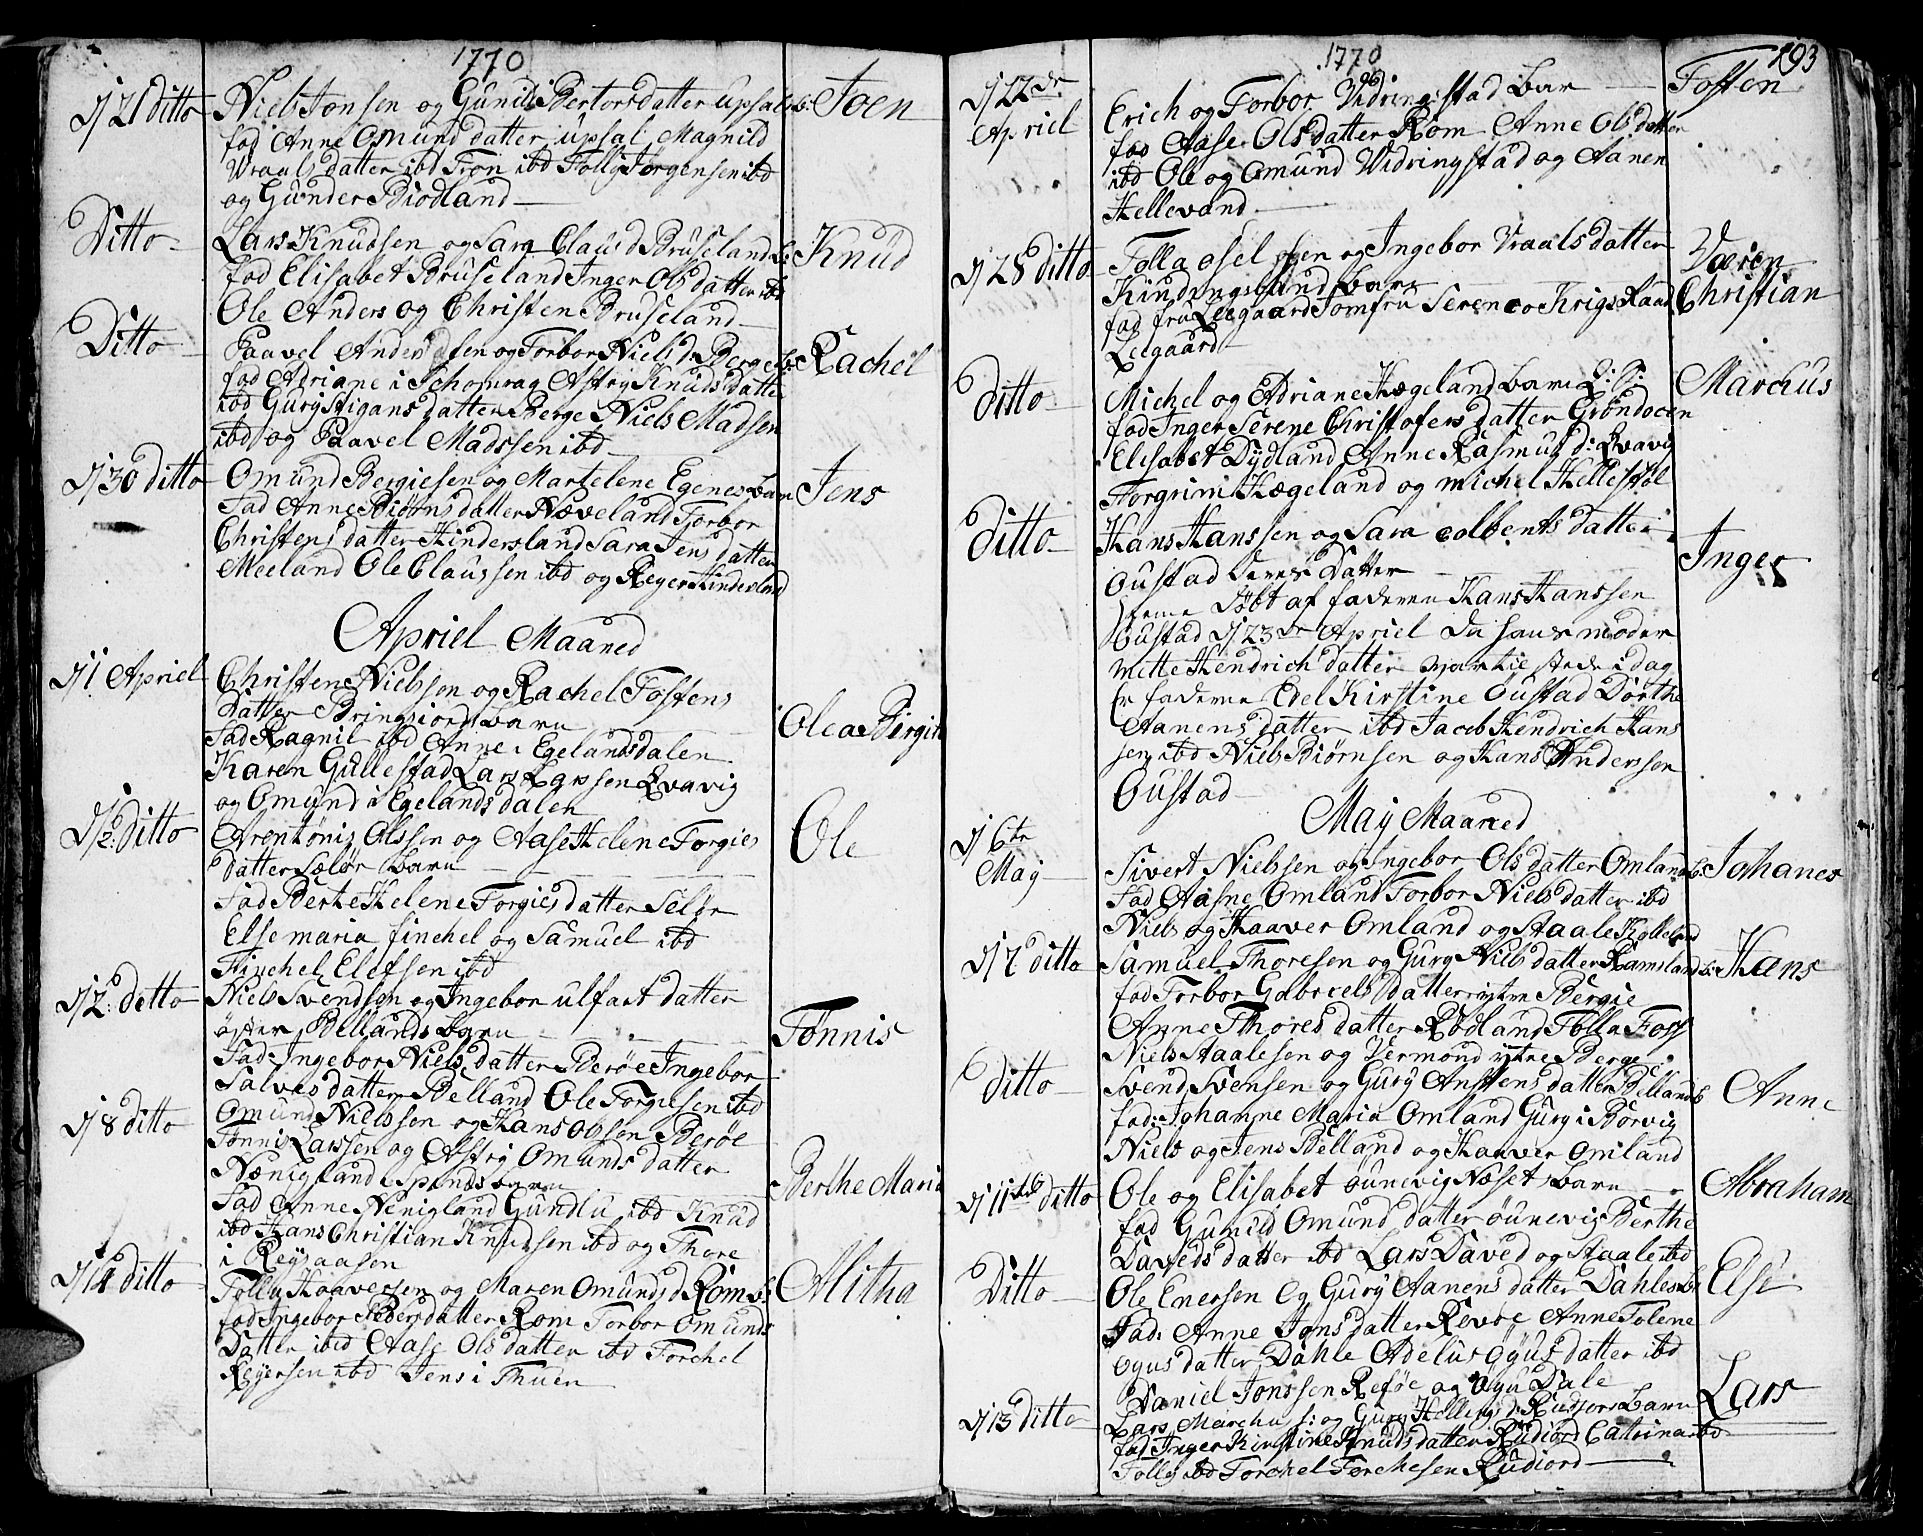 1770
d 21 ditto Niels Jonsen og Gunild Bertorsdatter Upsal b: Joen
fad Anne Omunddatter upsal Magnild
Vraalsdatter ibd Tron ibd Tolly Jorgensen ibd
og Gunder Biodland
Ditto Lars Knudsen og Sara Claus d Bruseland b: Knud
fad Elisabet Bruseland Inger Olsdatter ibd
Ole Anders og Christen Bruseland
Ditto Paavel Andersen og Torbor Niels d: Berge b: Rachel
fad Adriane i Schomrag Astry Knudsdatter
ibd Gury Stigansdatter Berge Niels Madsen
ibd og Paavel Madssen ibd
d 30 ditto Omund Bergiesen og Martelene Egenes barn Jens
Fad Anne Biørnsdatter Næveland Torbor
Christensdatter Hindersland Sara Jensdatter
Meeland Ole Claussen ibd og Reyer Hindersland
Apriel Maaned
d 1 Apriel Christen Nielssen og Rachel Tostens
datter Bringsiord barn Olea Birgit
Fad Ragnil ibd Anne i Egelandsdalen
Karen Gullestad Lars Larssen Qvavig
og Omund i Egelandsdalen
d 2: ditto Arentønis Olssen og Aase Helene Torgies Ole
datter Sælør barn
Fad Berte Helene Torgiesdatter Selør
Else maria finchel og Samuel ibd
Finchel Elefsen ibd
d 2: ditto Niels Svendsen og Ingebor ulfast datter
øster Bellands barn Tønnis
Fad: Ingebor Nielsdatter Berøe Ingebor
Salvesdatter Belland Ole Torgiesen ibd
Omund Nielssen og Hans Olssen Berøe
d 8 ditto Tønnis Larssen og Astry Omundsdatter
Nænigland i Spinds barn Berthe Maria
Fad Anne Nenigland Gundlu ibd Knud
ibd Hans Christian Knudsen ibd og Thore
i Reysaasen
d 14 ditto Tolly Haaversen og Maren Omundsd Rom b: Alitha
fad Ingebor Pedersdatter Rom Torbor Omunds
Datter ibid Aase Olsdatter ibd Torchel
Reyersen ibd Jens i Thuen
1770
193
d 22de Apriel Erich og Torbor Vidringstad barn Tosten
fad Aase Olsdatter Rom Anne Olsdatter
ibd Ole og Omund Vidringstad og Aanen
Hellevand
d 28 ditto Tolla oselssen og Ingebor Vraalsdatter Væren
Kudingslund barn Christian
fad fru Leegaard Jomfru Seren co Krigs Raad
Leegaard
Ditto Michel og Adriane Hægeland barn Marchus
fad Inger Serene Christofersdatter Grøndocen
Elisabet Dydland Anne Rasmus d: Qvavig
Torgrim Hægeland og michel Hellestøl
Ditto Hans Hanssen og Sara colbentsdatter Inger
Oustad deres Datter
døbt af faderen Hans Hanssen
Oustad d 23de Apriel da hans moder
Mette Hendrichdatter var tilstæde i dag
Er faderne Edel Kirstine Oustad Dorthe
Aanensdatter ibd Jacob Hendrich Hans
sen ibd Niels Biørnsen og Hans Anderssen
Oustad
May Maaned
d 6te May Sivert Nielssen og Ingebor Olsdatter Omland b: Johanes
Fad Aasne Omland Torbor Nielsdatter ibd
Niels og Haaver Omland og Staale Kolleland
d 7 ditto Samuel Thoresen og Gury Nielsdatter Ramsland b: Hans
fad Torbor Gabrielsdatter ytre Bergie
Anne Thoresdatter Rødland Tolla Foss
Niels Staalesen og Vermond ytre Berge
Ditto Svend Svensen og Gury Anstensdatter Belland b Anne
fad: Johanne Maria Omland Gury i Borvig
Niels og Jens Belland og Haaver Omland
d 11te ditto Ole og Elisabet ounevig Næset barn Abraham
fad Gunild Omunddatter øunevig Berthe
Davedsdatter ibd Lars Daved og Staale ibd
Ditto Ole Enersen Og Gury Aanensdatter Dahle b: Else
Fad: Anne Jonsdatter Revøe Anne Tolene
Oyusdatter Dahle Adelus Oyusdatter ibd
Daniel Jonssen Reføe og Oyu Dale
d 13 ditto Lars Marchus s: og Gury Hellings d: Rudjors barn Lars
fad Inger Kirstine Knudsdatter Rudiord Catrina ibd
Tollys ibd Torchel Torchesen Rudiord